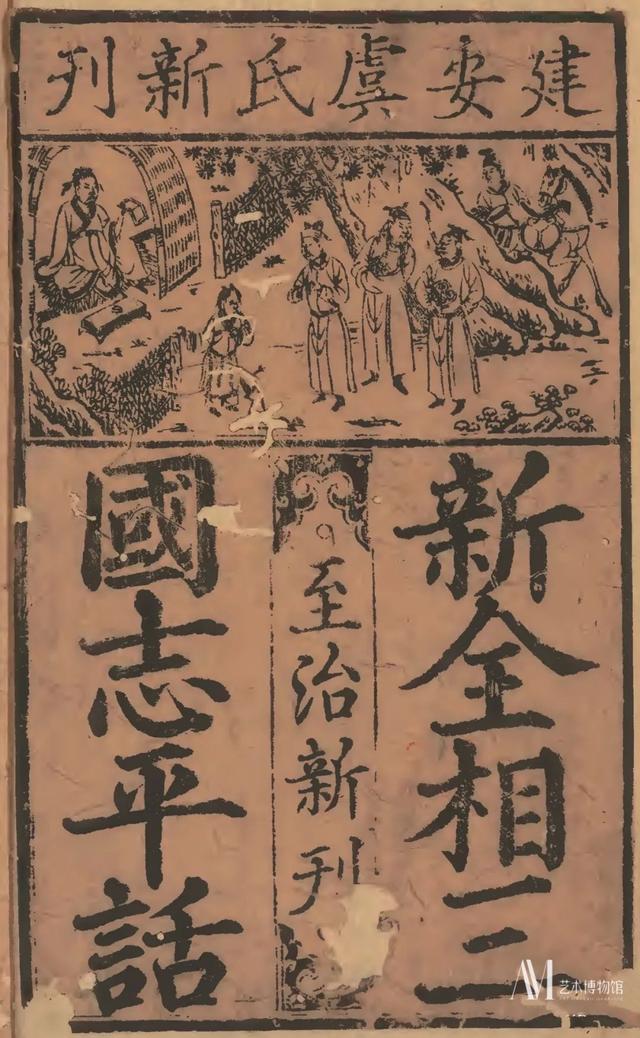 建安虞氏新刊
新全相三
至治新刊
國志平話
艺术博物馆